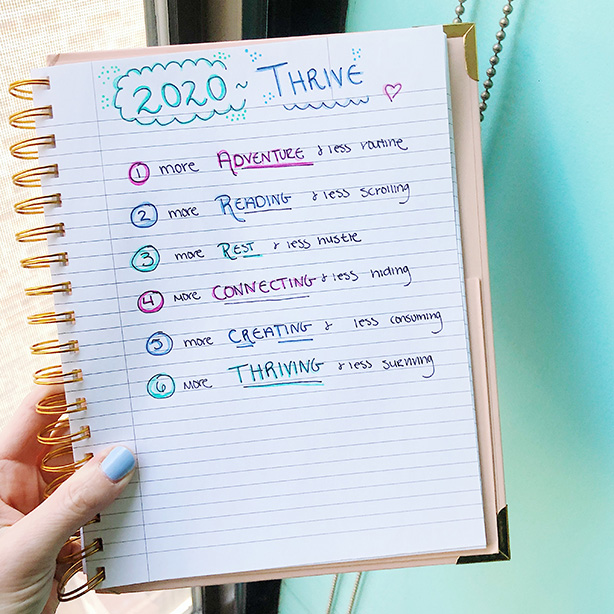 2020 ~ THRIVE
1 more ADVENTURE & less routine
2 more READING & less scrolling
3 more REST & less hustle
4 more CONNECTING & less hiding
5 more CREATING & less consuming
6 more THRIVING & less surviving